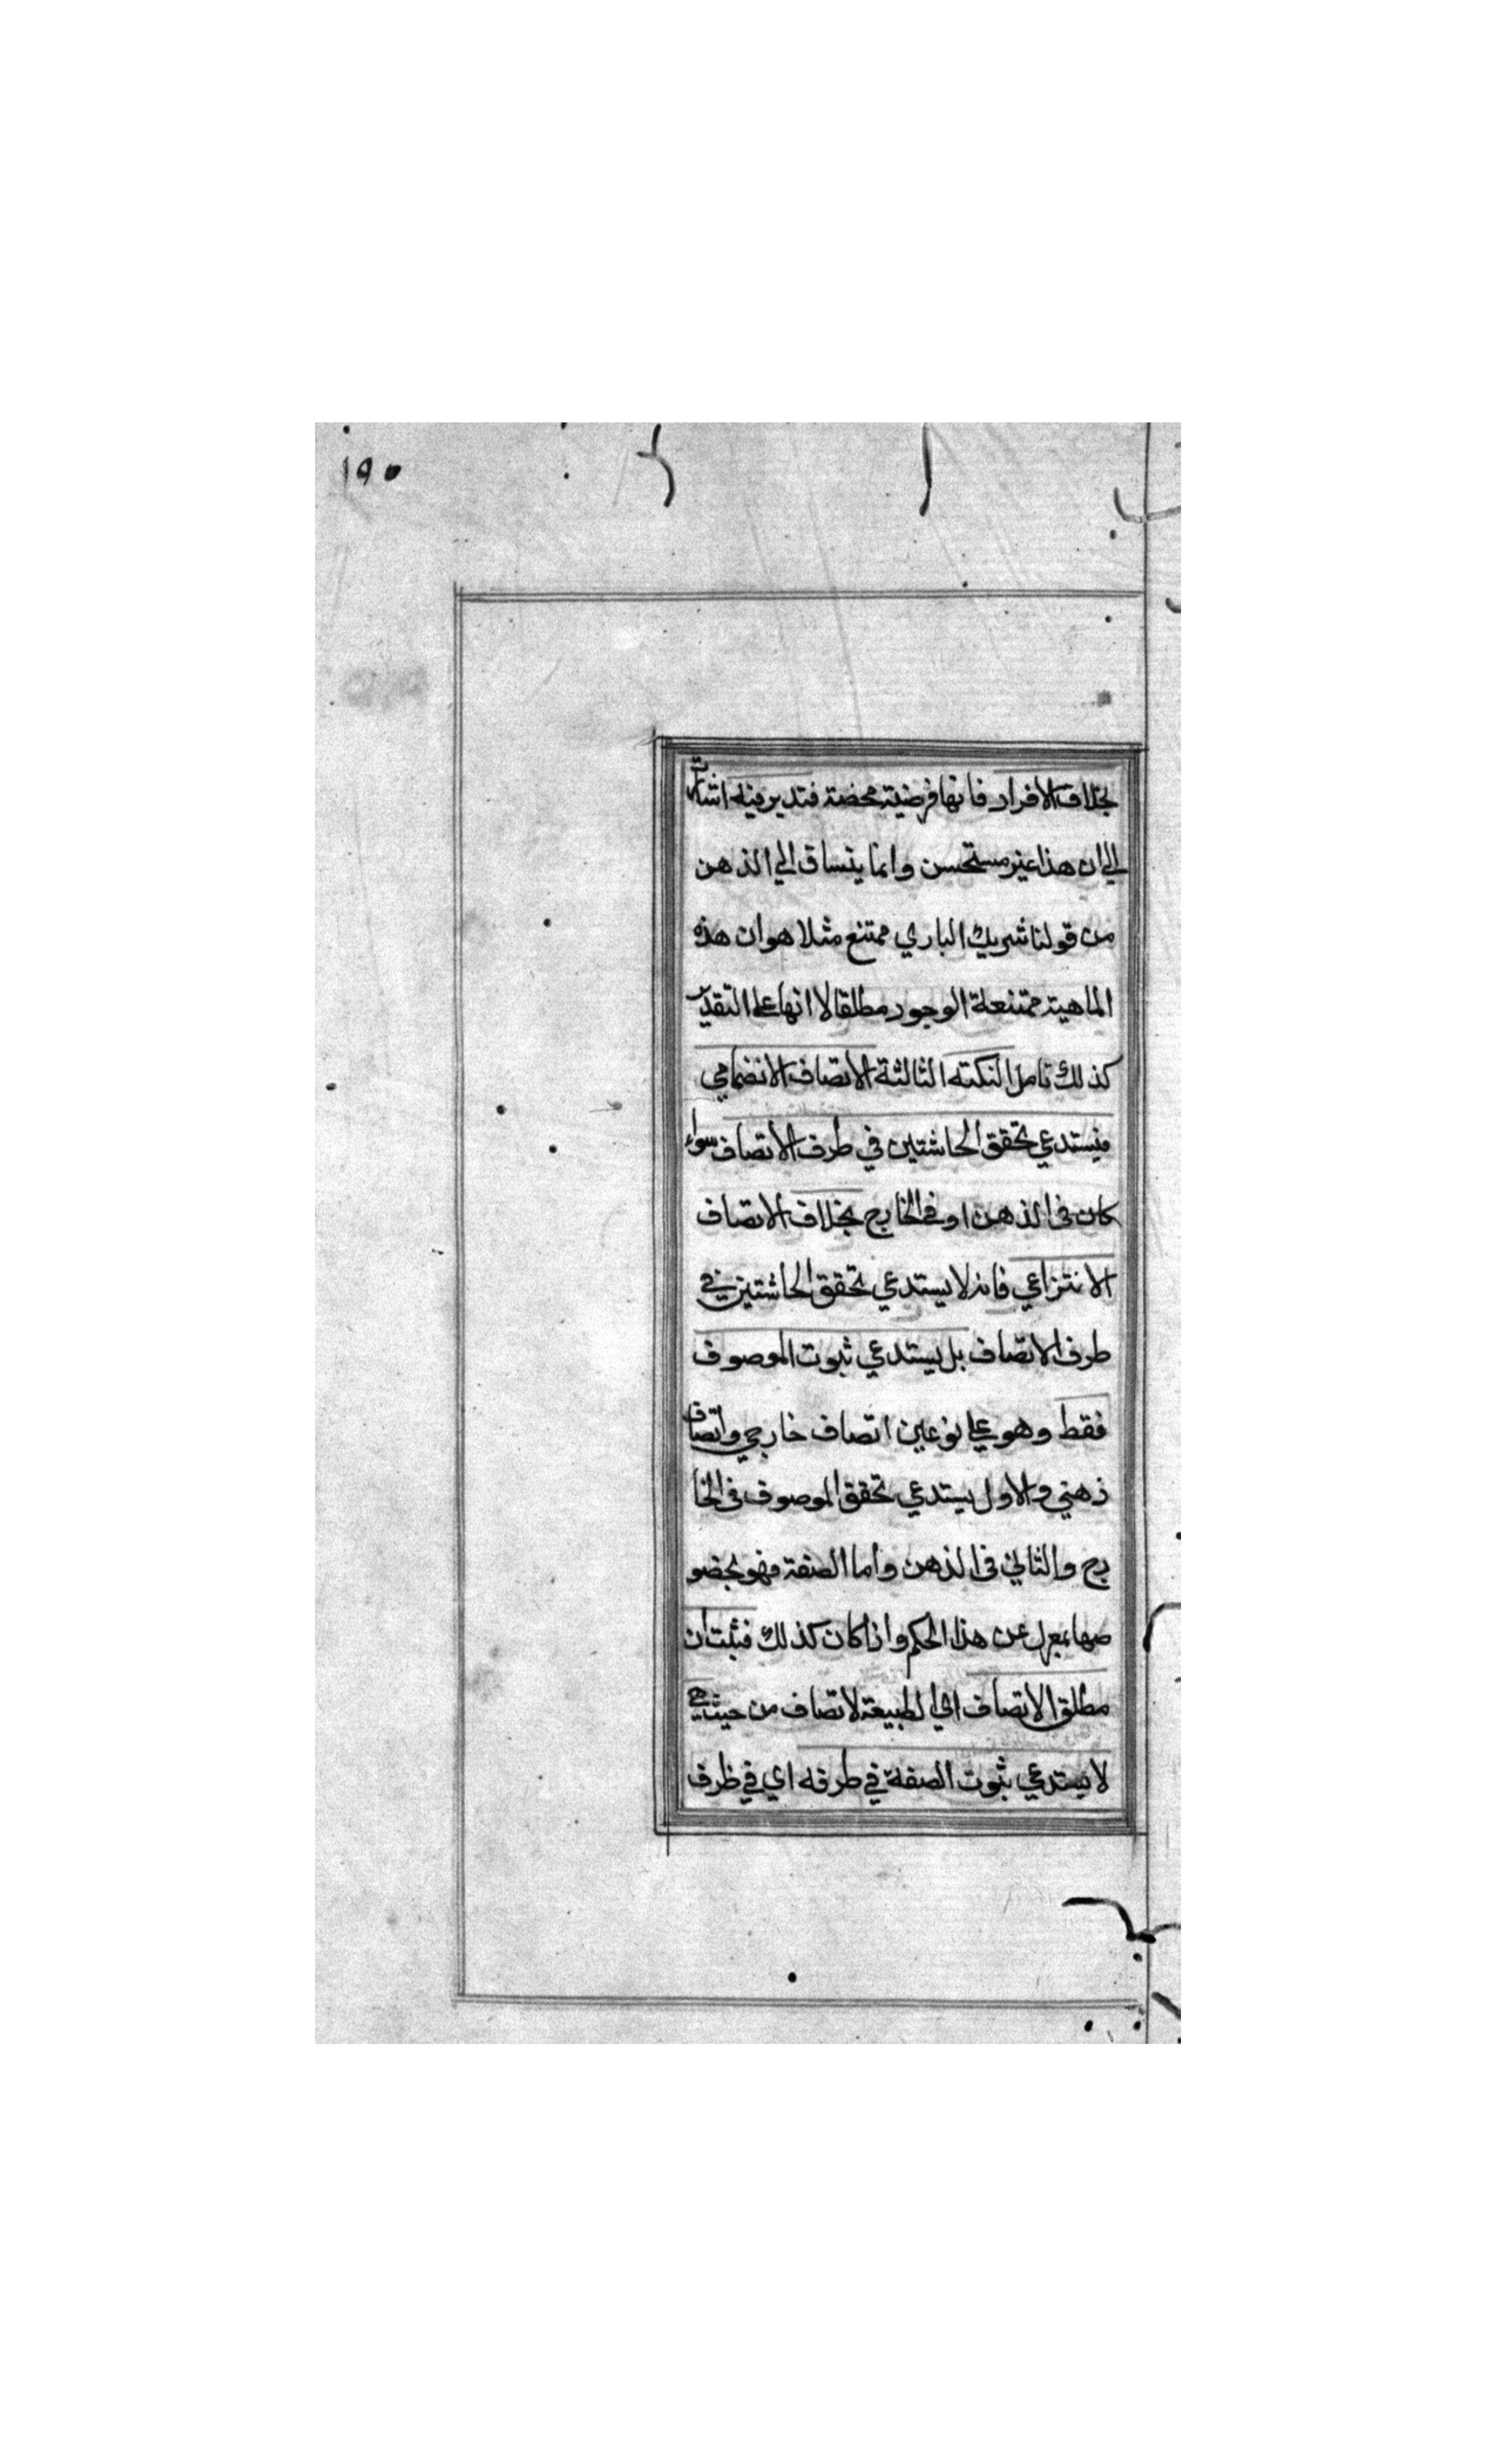 ١٩٥
بخلاف الافراد فانها فرضية محضة فتدبر فيه اشارة
الي ان هذا غير مستحسن وانما ينساق الي الذهن
من قولنا شريك الباري ممتنع مثلا هو ان هذه
الماهية ممتنعة الوجود مطلقا لا انها علي التقدير
كذلك تامل النكتة الثالثة الاتصاف الانضمامي
فيستدعي تحقق الحاشتين في طرف الاتصاف سواء
كان في الذهن او في الخارج بخلاف الاتصاف
الانتزاعي فانه لا يستدعي تحقق الحاشتين في
طرف الاتصاف بل يستدعي ثبوت الموصوف
فقط وهو علي نوعين اتصاف خارجي واتصاف
ذهني والاول يستدعي تحقق الموصوف في الخا
رج والثاني في الذهن واما الصفة فهو بخصو
صها بمعزل عن هذا الحكم واذا كان كذلك فثبت ان
مطلق الاتصاف اي الطبيعة لاتصاف من حيث هي
لا يستدعي ثبوت الصفة في طرفه اي في ظرف